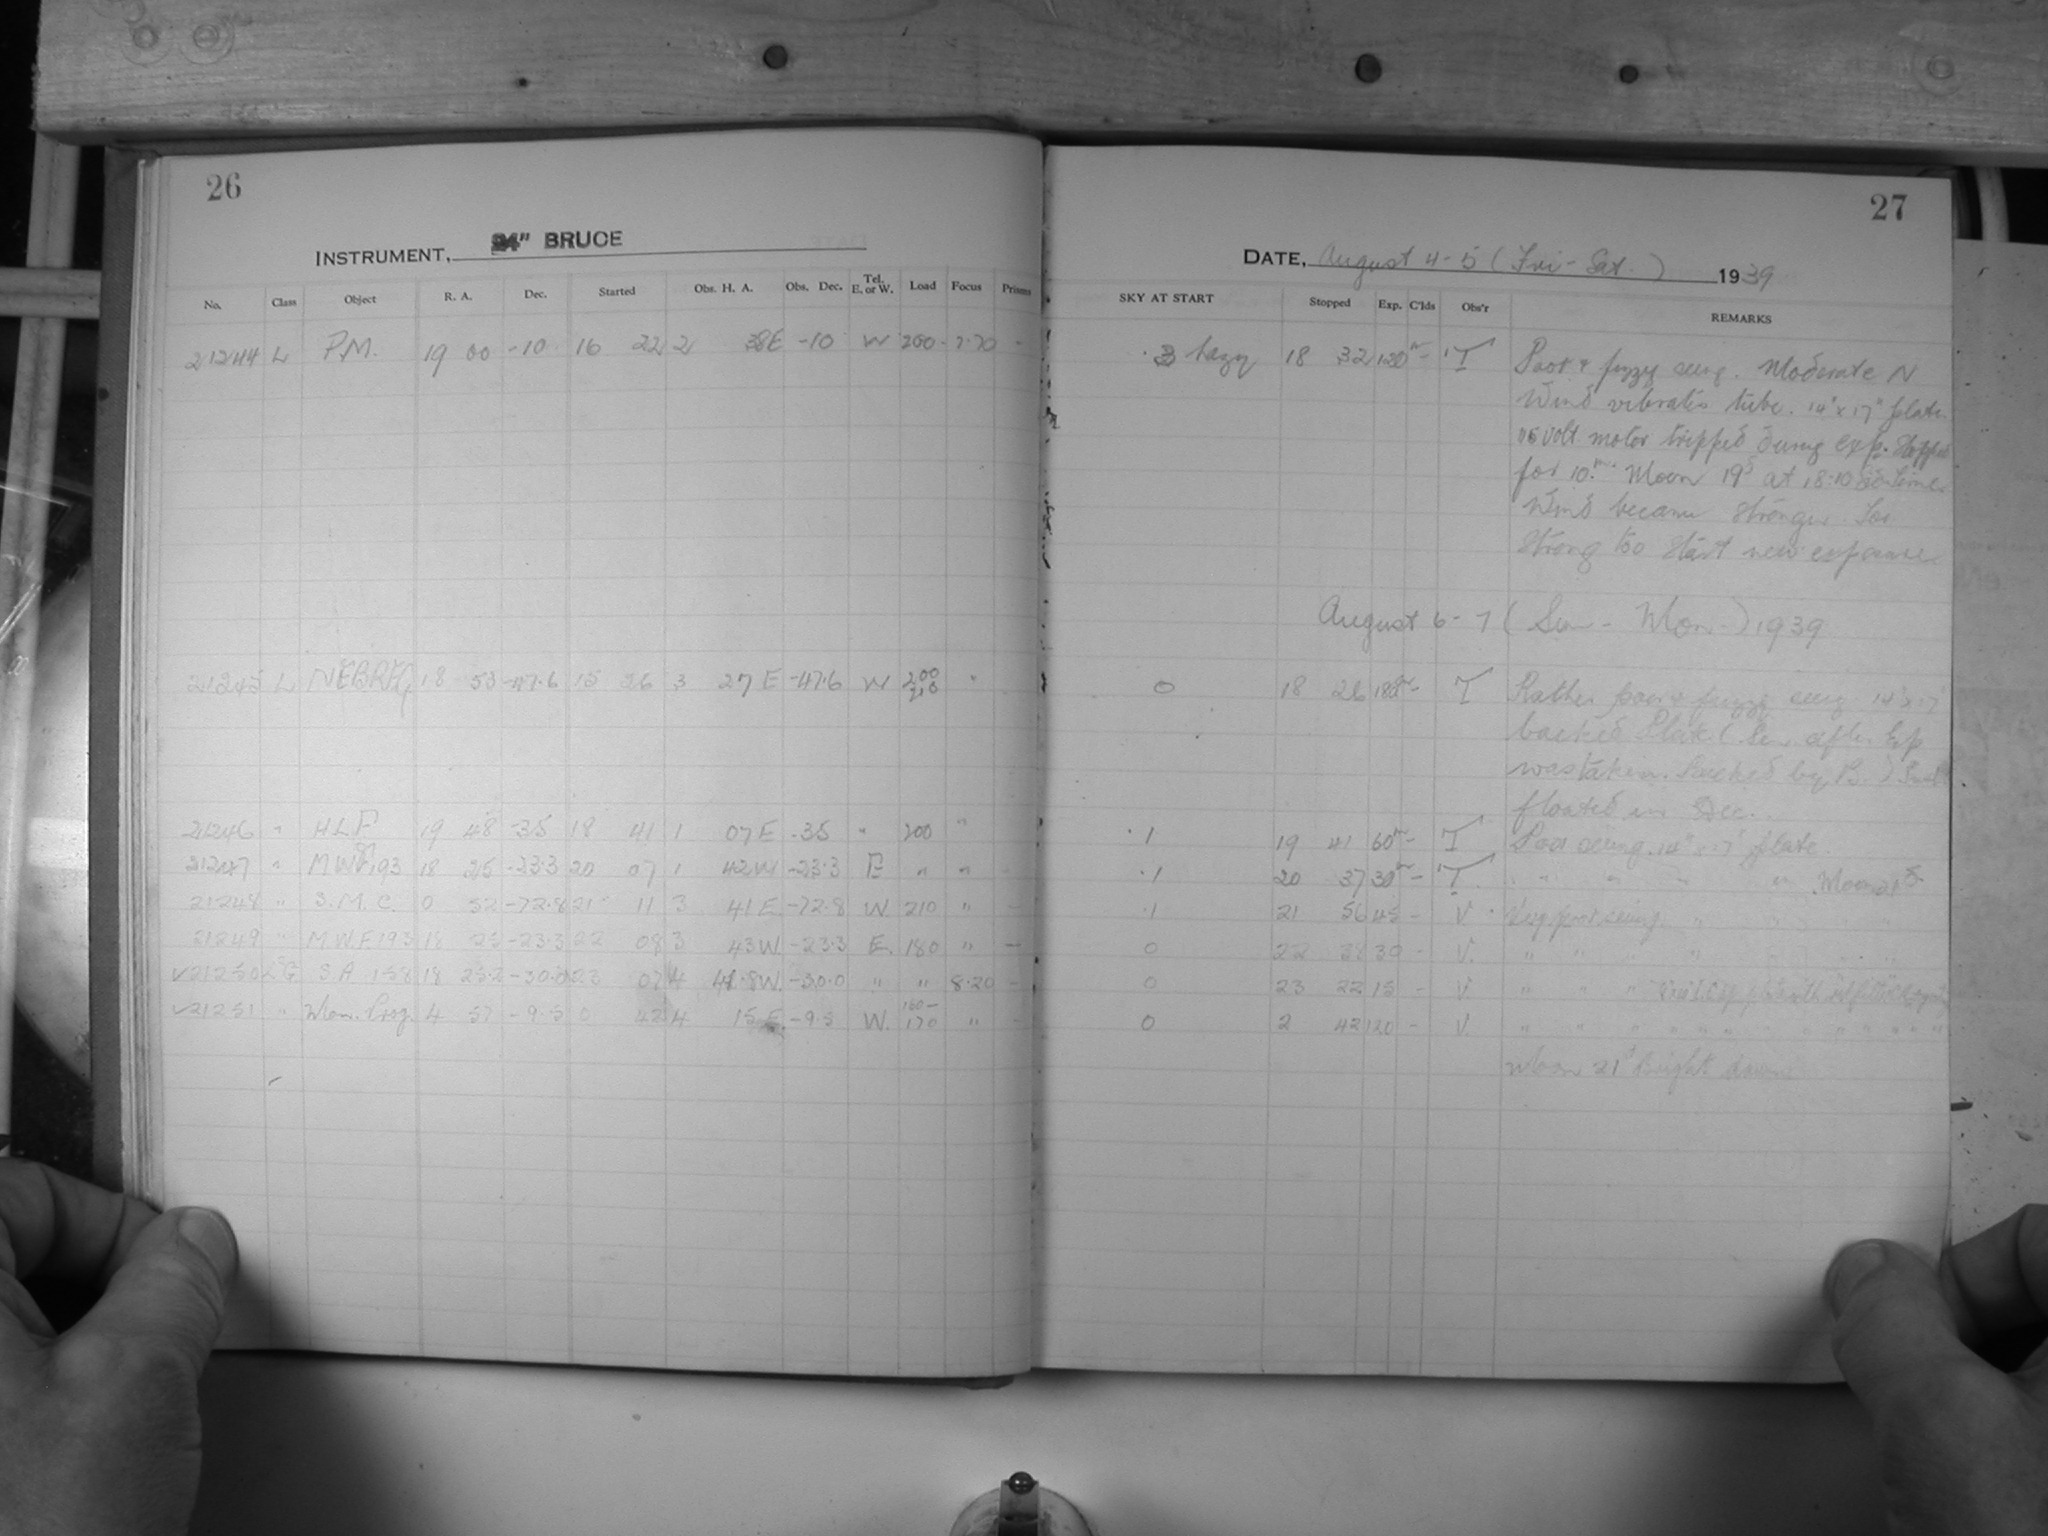 26
INSTRUMENT, 24" BRUCE
No. Class Object R. A. Dec. Started Obs. H. A. Obs. Dec. Tel. E. or W. Load Focus Prisms
21244 L P.M. 19 00 -10 16 22 2 38E -10 W 200 7.70 -
21245 L 18 53 -47.6 15 26 3 27 E -47.6 W 200 210 "
21246 " HLF 19 48 -35 18 41 1 07 E -35 " 200 "
21247 " MWF 193 18 25 -23.3 20 07 1 42W -23.3 E " "
21248 " S.M.C. 0 52 -72.8 21 11 3 41 E -72.8 W 210 " -
21249 " M.W.F. 193 18 25 -23.3 22 08 3 43W. -23.3 E. 180 " -
✓21250 S.A. 158 18 25.2 -30.0 23 07 4 41.8W. -30.0 " " 8.20 -
✓21251 " Mon. Prog. 4 57 -9.5 0 42 4 15 E. -9.5 W. 160- 170 " -
27
DATE, August 4-5 (Fri-Sat.) 1939
SKY AT START Stopped Exp. C'lds Obs'r REMARKS
.3 hazy 18 32 120m - T Poor & fuzzy seeing. Moderate N
Wind vibrates tube. 14" x 17" plate.
volt motor tripped during exp. Stopped
for 10m. Moon 19 at 18:10
Wind became stronger. Too
strong too start new exposure
August 6-7 (Sun-Mon) 1939
0 18 26 180m - T Rather poor & fuzzy seeing 14 x 17
backed Plate. ( after Exp
was taken. Backed by B.)
floated in Dec.
.1 19 41 60m - T Poor seeing. 14" x 17" plate.
.1 20 37 30m - T " " " " " . Moon 21
.1 21 56 45 - V. Very poor seeing. "
0 22 38 30 - V. " " " " "
0 23 22 15 - V " " "
0 2 42 120 - V. " " " " " " " " " "
Moon 21 Bright dawn